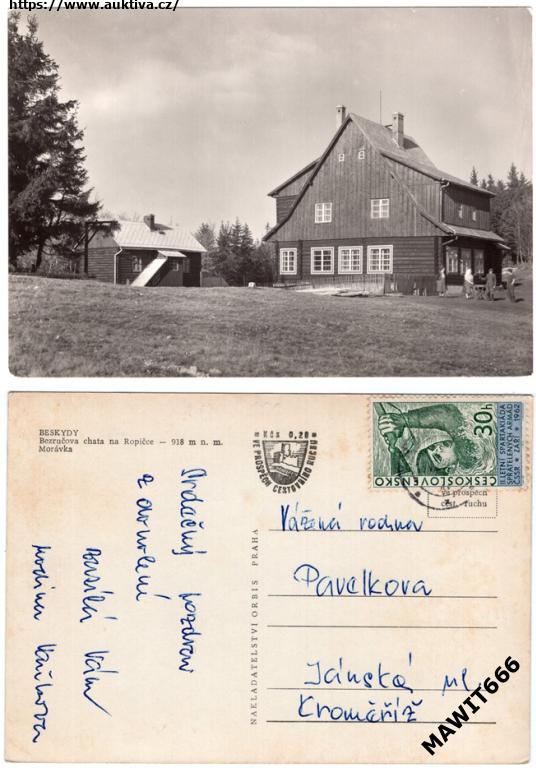 https://www.auktiva.cz/
BESKYDY
Bezručova chata na Ropičce — 918 m n. m.
Morávka
Srdečný pozdrav
z dovolení
zasílá Vám
rodina
Kčs 0,20
VE PROSPĚCH CESTOVNÍHO RUCHU
30h
ČESKOSLOVENSKO
II. LETNÍ SPARTAKIÁDA
SPŘÁTELENÝCH ARMÁD
ČSSR ★ ZÁŘÍ ★ 1962
ve prospěch
cest. ruchu
NAKLADATELSTVÍ ORBIS PRAHA
Vážená rodina
Pavelkova
Jánská ul.
Kroměříž
MAWIT666